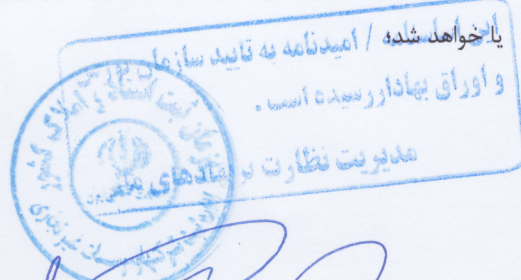 یا خواهد شد؛
این اساسنامه / امیدنامه به تایید سازمان بورس
و اوراق بهادار رسیده است .
مدیریت نظارت بر نهادهای مالی
سازمان ثبت اسناد و املاک کشور